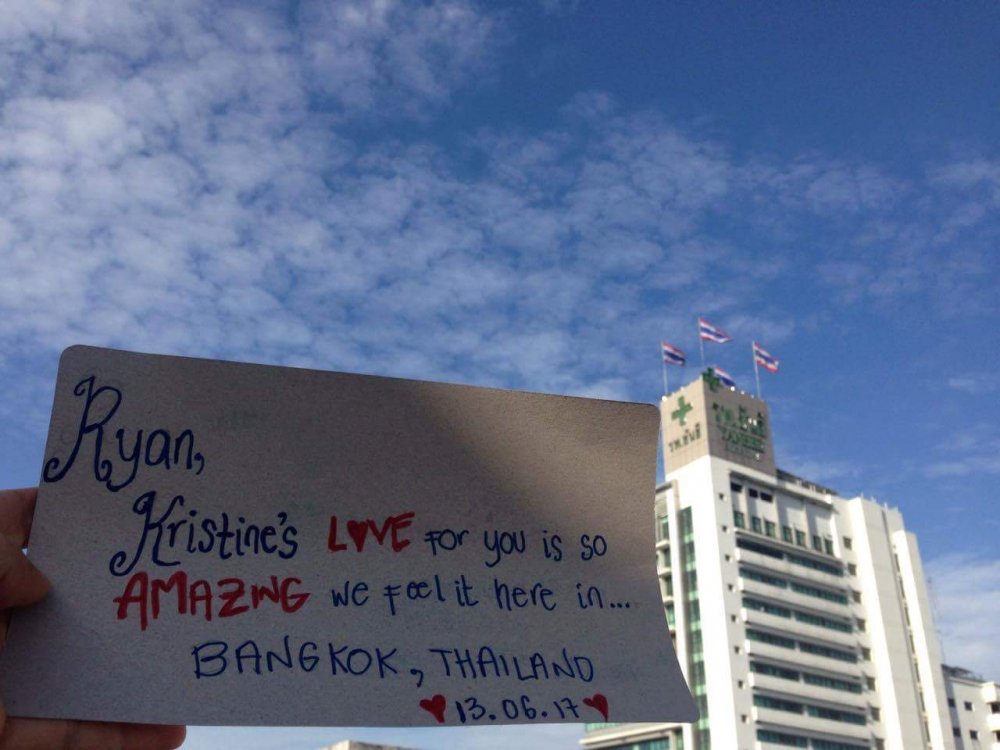 Ryan,
Kristine's LOVE for you is so
AMAZING we feel it here in...
BANGKOK, THAILAND
13.06.17
รพ.ยันฮี
รพ.ยันฮี
YANHEE